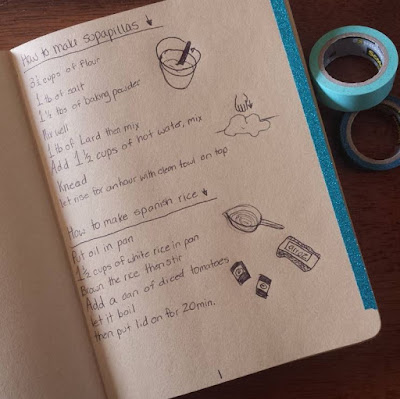 How to make sopapillas
3½ cups of flour
1 tb of salt
1¼ tbs of baking powder
Mix well
1 tb of Lard then mix
Add 1½ cups of hot water, mix
Knead
let rise for an hour with clean towl on top
How to make spanish rice
Put oil in pan
1½ cups of white rice in pan
Brown the rice then stir
Add a can of diced tomatoes
let it boil
then put lid on for 20min.
1